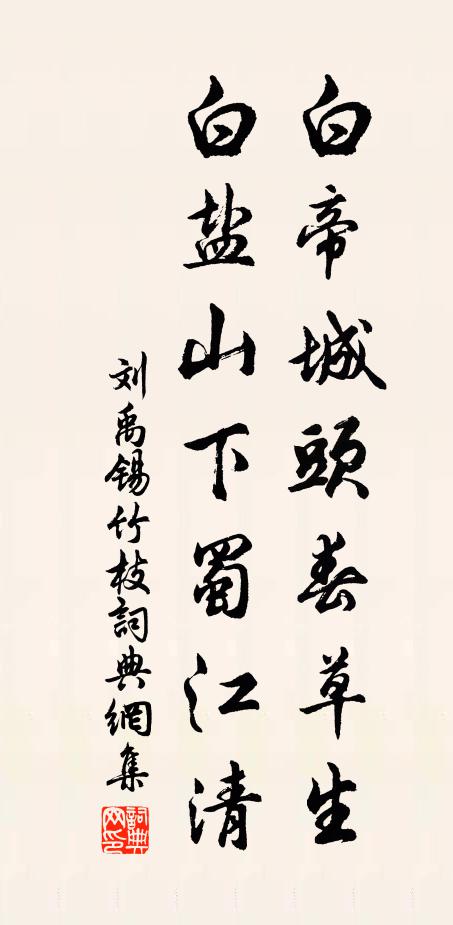 白帝城頭春草生
白盐山下蜀江清
刘禹锡竹枝詞典網集
詞典网印